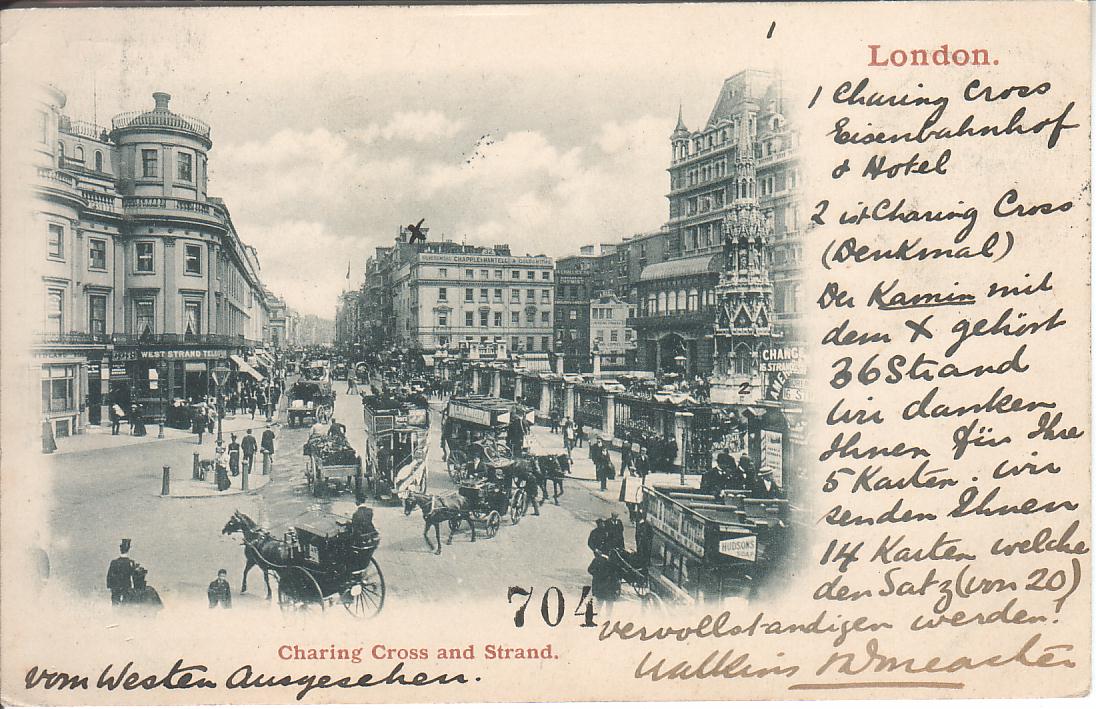 London.
1
1 Charing Cross
Eisenbahnhof
& Hotel
2 ist Charing Cross
(Denkmal)
Der Kamin mit
dem X gehört
36 Strand
Wir danken
Ihnen für Ihre
5 Karten. Wir
senden Ihnen
14 Karten welche
den Satz (von 20)
vervollständigen werden!
Watkins
CHAPPLE & MANTELL
WEST STRAND
CHANGE
2
HUDSONS
SOAP
704
Charing Cross and Strand.
vom Westen Ausgesehen.